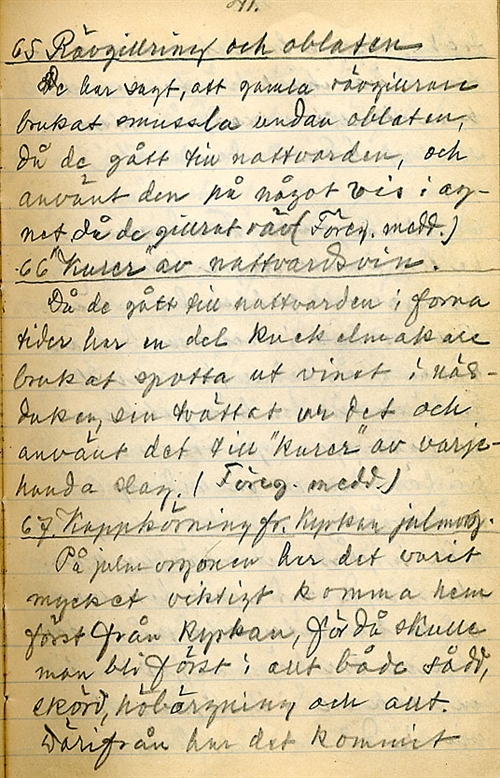 41.
65 Rävgillring och oblaten
De har sagt, att gamla rävgillrare
brukat smussla undan oblaten,
då de gått till nattvarden, och
använt den på något vis i ag-
net, då de gillrat räv (Föreg. medd.)
66 "Kurer" av nattvardsvin.
Då de gått till nattvarden i forna
tider har en del kuckelmakare
brukat spotta ut vinet i näs-
duken, sen tvättat ur det och
använt det till "kurer" av varje-
handa slag. (Föreg. medd.)
67. Kappkörning fr. kyrkan julmorg.
På julmorgonen har det varit
mycket viktigt komma hem
först från kyrkan, för då skulle
man bli först i allt både sådd,
skörd, höbärgning och allt.
Därifrån har det kommit